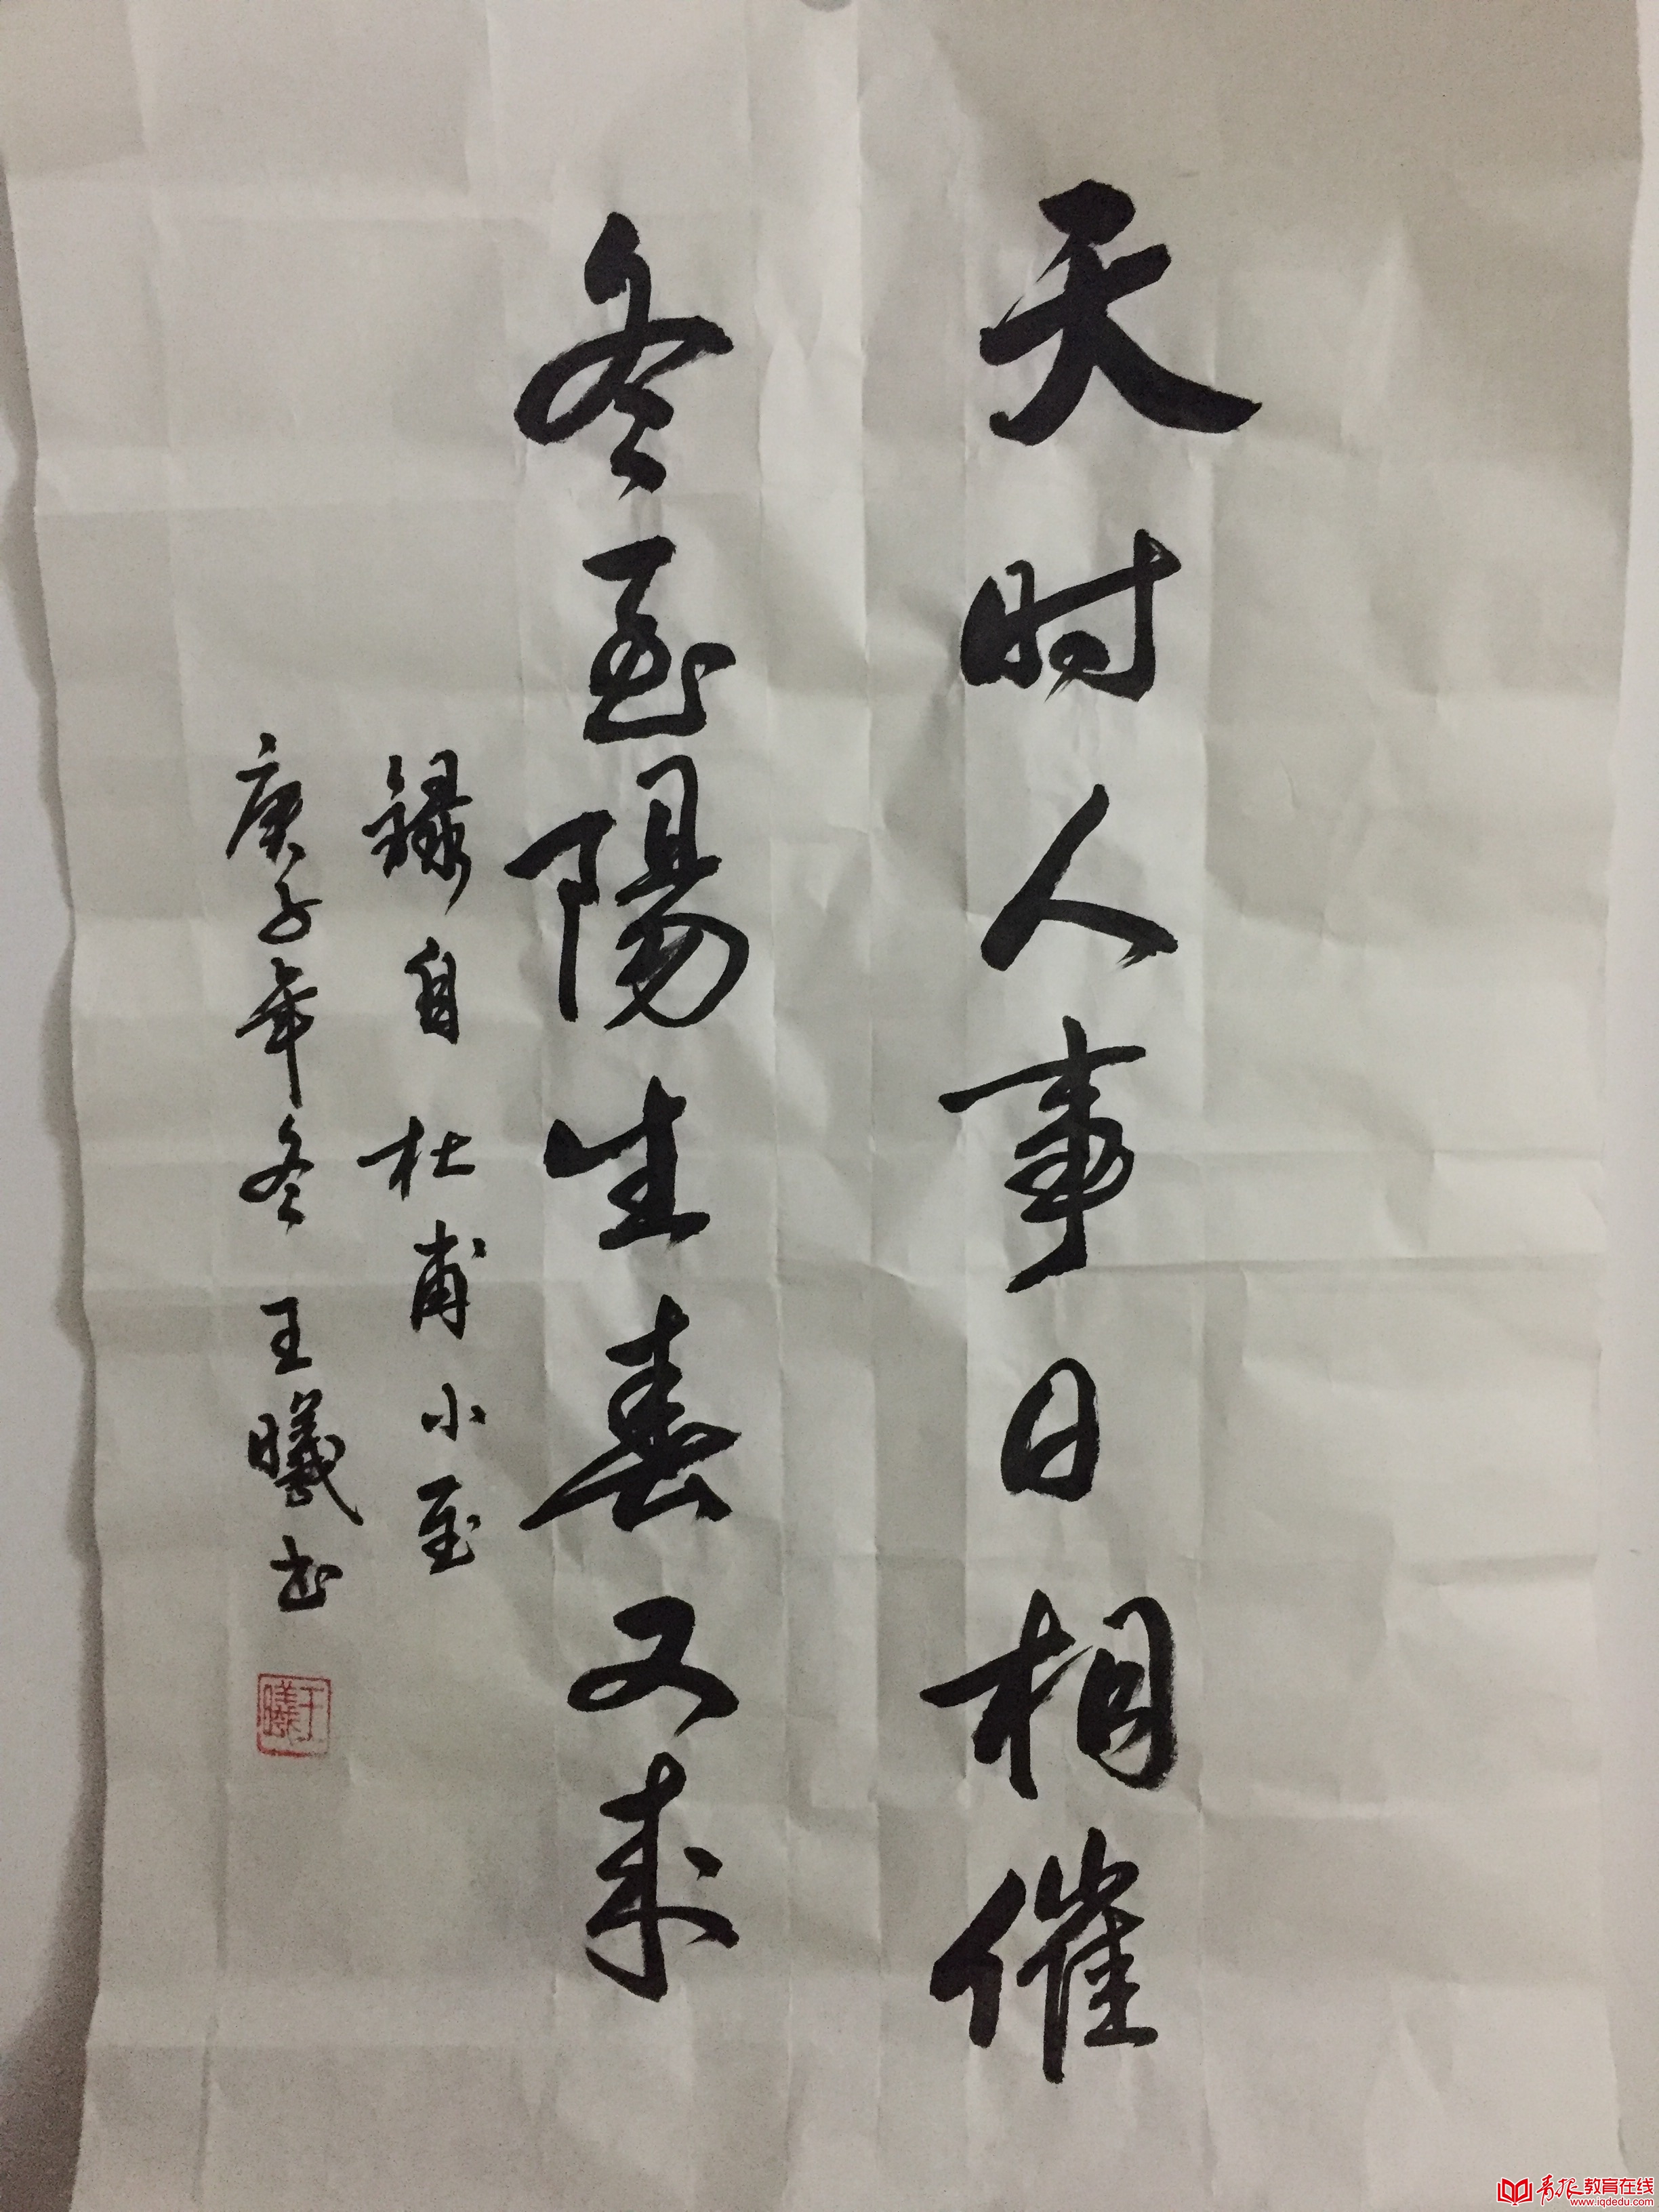 天时人事日相催
冬至陽生春又来
録自杜甫小至
庚子年冬王曦书
王曦
青报教育在线
www.iqdedu.com